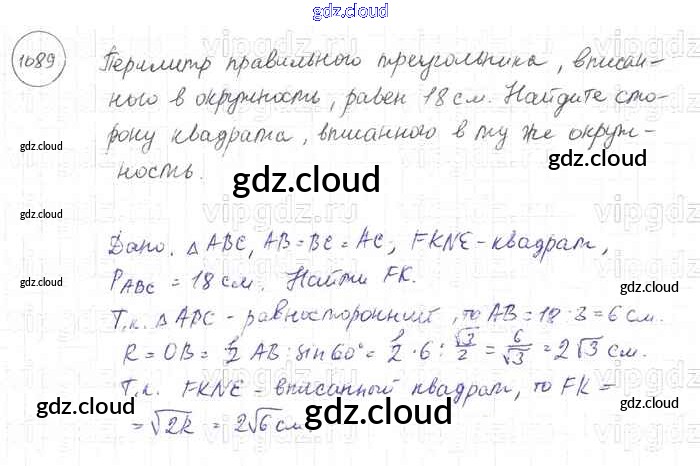 gdz.cloud
1089
Периметр правильного треугольника, вписан-
ного в окружность, равен 18 см. Найдите сто-
рону квадрата, вписанного в ту же окруж-
ность.
gdz.cloud
gdz.cloud
gdz.cloud
gdz.cloud
gdz.cloud
Дано. △ABC, AB = BC = AC, FKNE - квадрат,
P_ABC = 18 см. Найти FK.
Т.к. △ABC - равносторонний, то AB = 18 : 3 = 6 см.
R = OB = 1/2 AB : sin 60° = 1/2 · 6 : √3/2 = 6/√3 = 2√3 см.
Т.к. FKNE - вписанный квадрат, то FK =
= √2R = 2√6 см
gdz.cloud
gdz.cloud
gdz.cloud
gdz.cloud